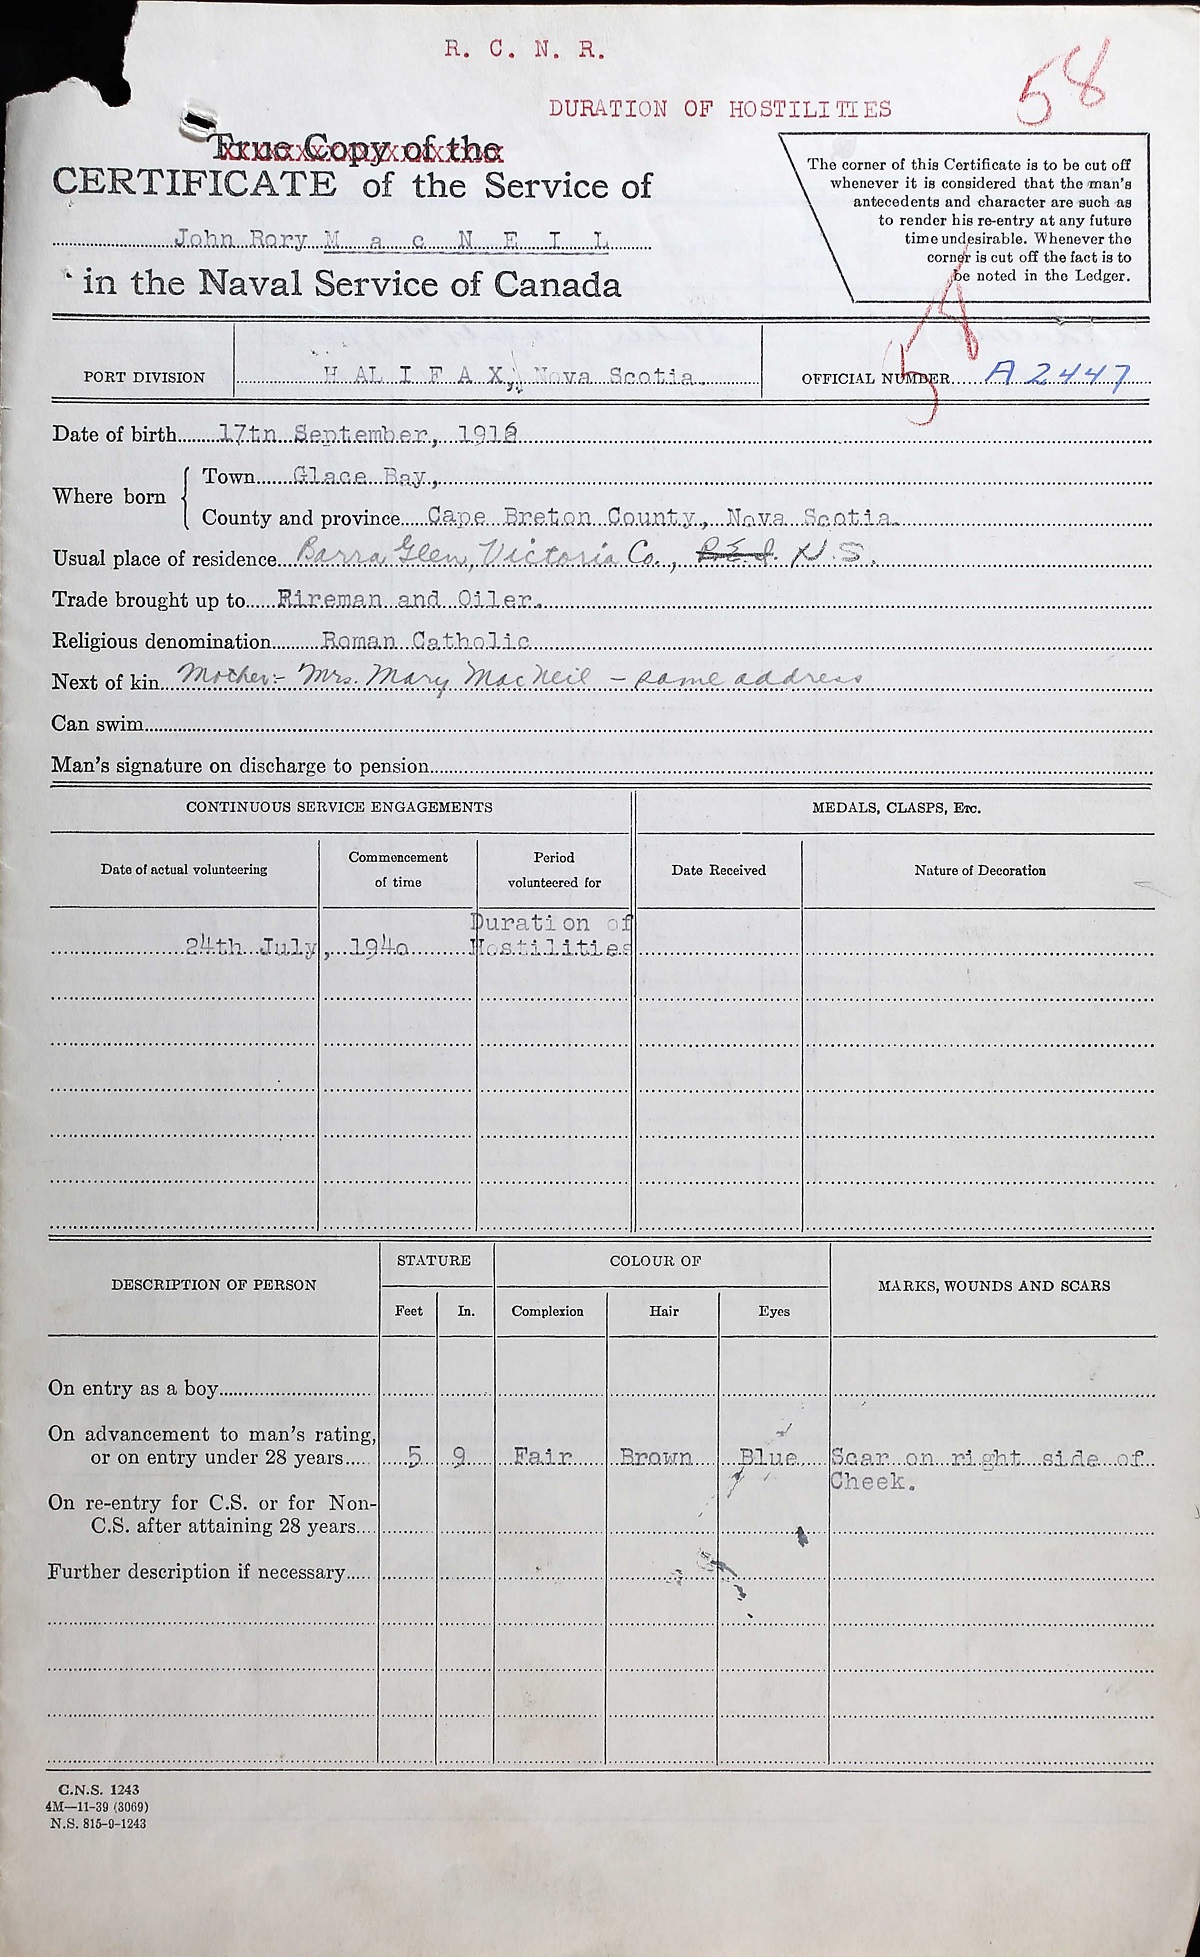 R. C. N. R.
58
DURATION OF HOSTILITIES
True Copy of the
CERTIFICATE of the Service of
John Rory M a c N E I L
in the Naval Service of Canada
The corner of this Certificate is to be cut off
whenever it is considered that the man's
antecedents and character are such as
to render his re-entry at any future
time undesirable. Whenever the
corner is cut off the fact is to
be noted in the Ledger.
58
PORT DIVISION H A L I F A X, Nova Scotia. OFFICIAL NUMBER A 2447
Date of birth 17th September, 1916
Where born
Town Glace Bay,
County and province Cape Breton County, Nova Scotia.
Usual place of residence Barra Glen, Victoria Co., P.E.I. N.S.
Trade brought up to Fireman and Oiler.
Religious denomination Roman Catholic
Next of kin Mother:- Mrs. Mary MacNeil - same address
Can swim
Man's signature on discharge to pension
CONTINUOUS SERVICE ENGAGEMENTS MEDALS, CLASPS, Etc.
Date of actual volunteering Commencement of time Period volunteered for Date Received Nature of Decoration
Duration of
24th July, 1940 Hostilities
DESCRIPTION OF PERSON STATURE COLOUR OF MARKS, WOUNDS AND SCARS
Feet In. Complexion Hair Eyes
On entry as a boy
On advancement to man's rating,
or on entry under 28 years 5 9 Fair Brown Blue Scar on right side of
Cheek.
On re-entry for C.S. or for Non-
C.S. after attaining 28 years
Further description if necessary
C.N.S. 1243
4M—11-39 (3069)
N.S. 815-9-1243